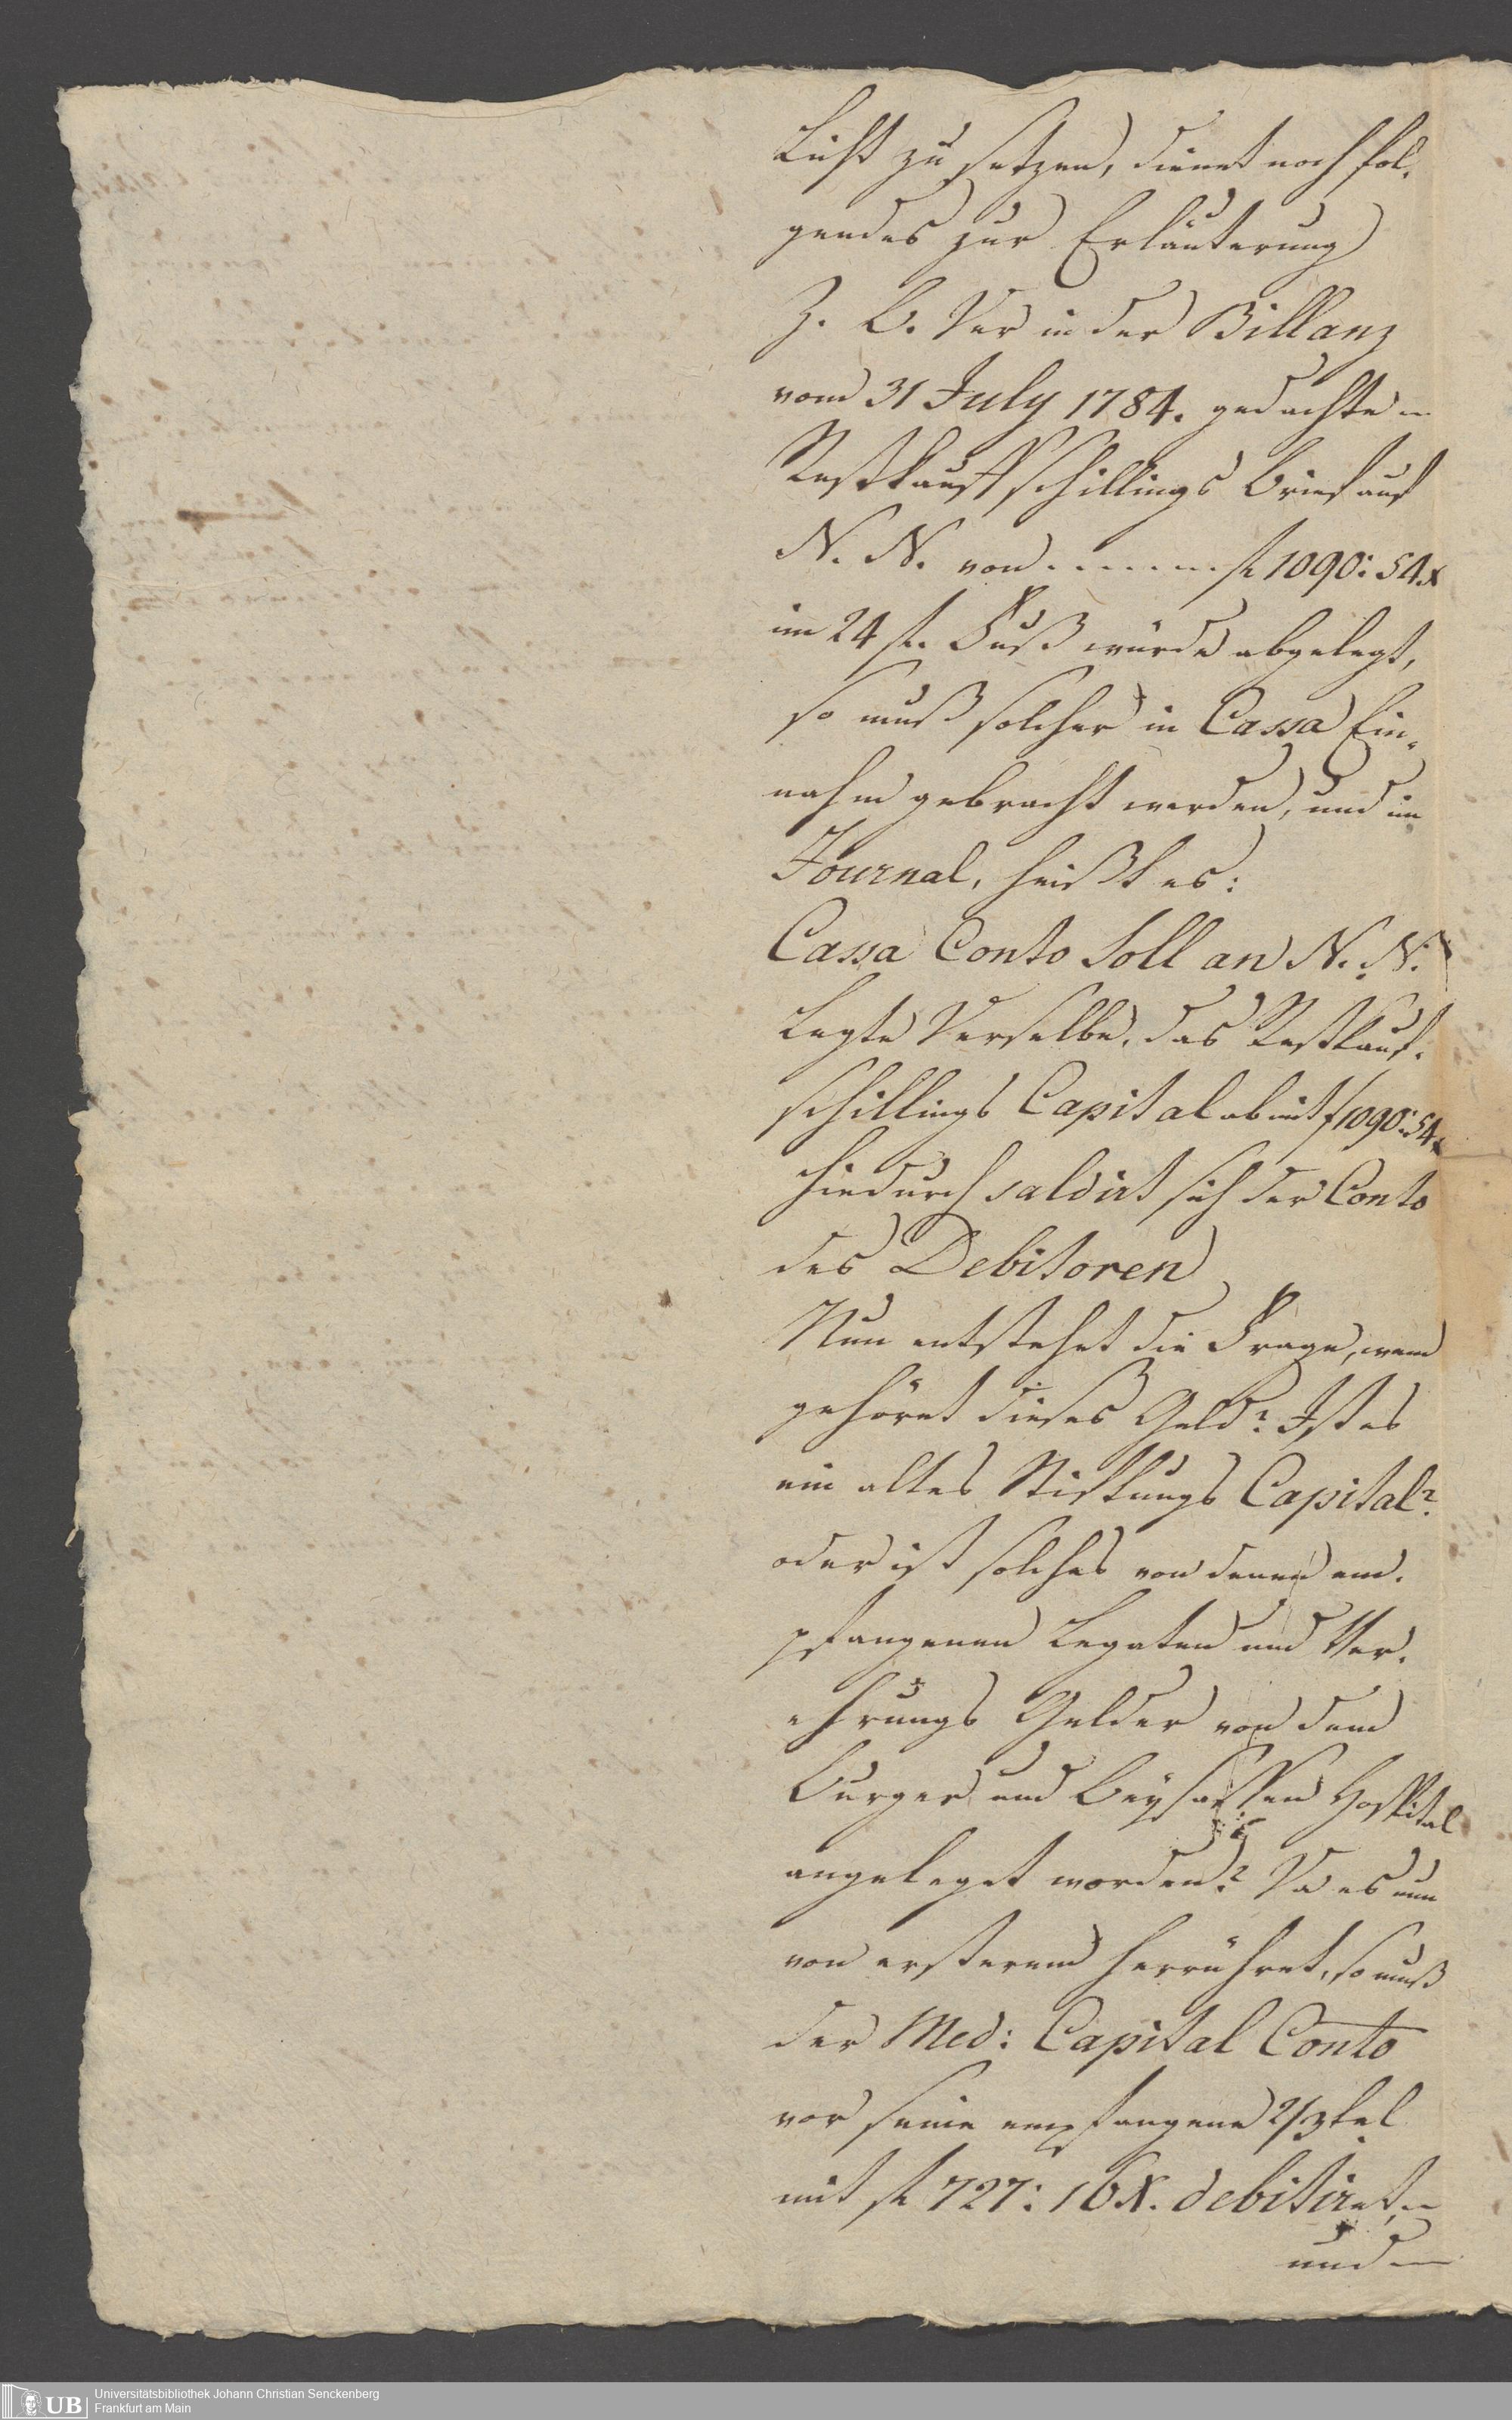 Licht zu setzen, dienet noch fol-
gendes zur Erläuterung
Z. B. Der in der Billanz
vom 31 July 1784. gedachte
Restkauffschillings Brief auf
N. N. von . . . . . . . f 1090: 54 x
im 24 f. Fuß würde abgelegt,
so muß solcher in Cassa Ein-
nahm gebracht werden, und im
Journal, heißt es:
Cassa Conto Soll an N. N.
Legte Derselbe, das Restkauf-
schillings Capital ab mit f 1090: 54 x
hiedurch saldirt sich der Conto
des Debitoren
Nun entstehet die Frage, wem
gehöret dieses Geld? Ist es
ein altes Stiftungs Capital?
oder ist solches von denen em-
pfangenen Legaten und Ver-
ehrungs Gelder von dem
Burger und Beysassen Hospital
angeleget worden? Da es nun
von ersterem herrühret, so muß
der Med: Capital Conto
vor seine empfangene 2/3tel
mit f 727: 16 x. debitiret,
und
UB
Universitätsbibliothek Johann Christian Senckenberg
Frankfurt am Main